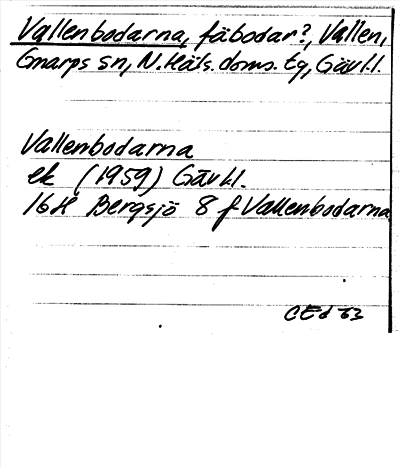 Vallenbodarna, fäbodar?, Vallen,
Gnarps sn, N. Häls. doms. tg, Gävl.l.
Vallenbodarna
ek (1959) Gävl.l.
16H Bergsjö 8 f Vallenbodarna
CEd 63